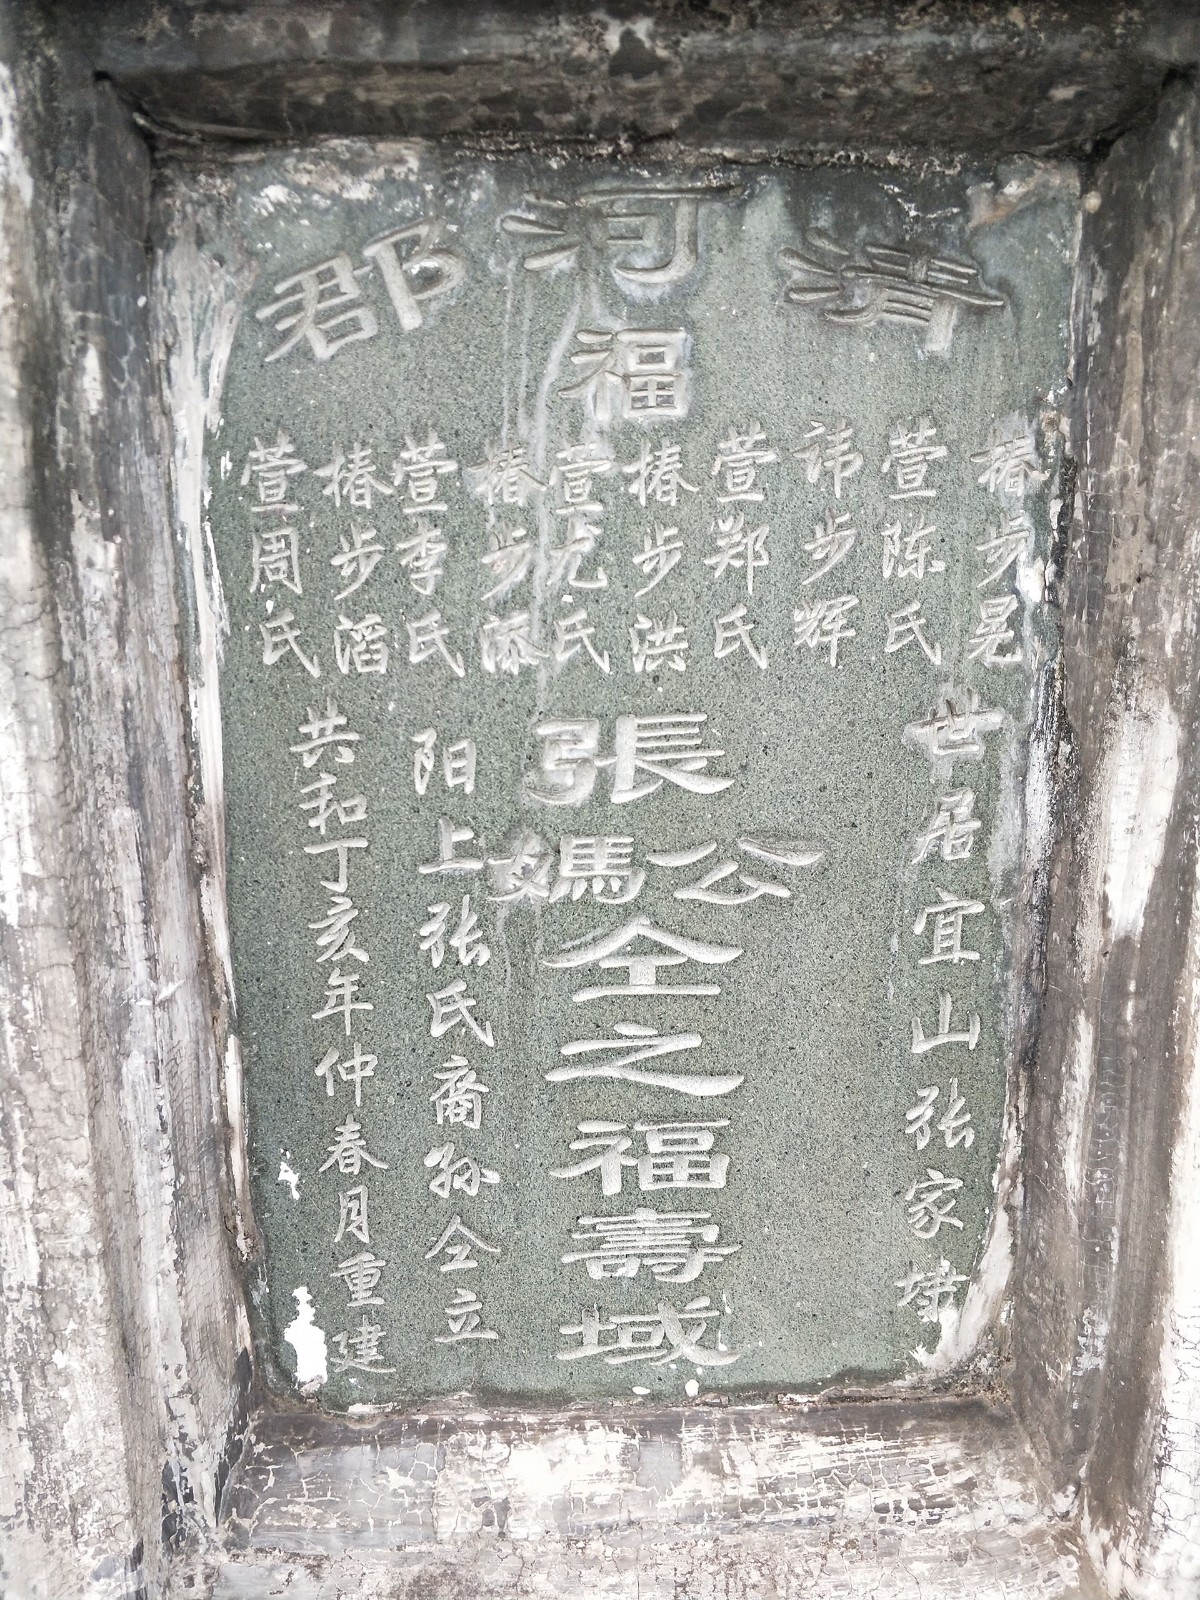 清河郡
福
椿步晃
萱陈氏
讳步辉
萱郑氏
椿步洪
萱尤氏
椿步添
萱李氏
椿步滔
萱周氏
世居宜山张家垟
張公媽仝之福壽域
阳上张氏裔孙仝立
共和丁亥年仲春月重建